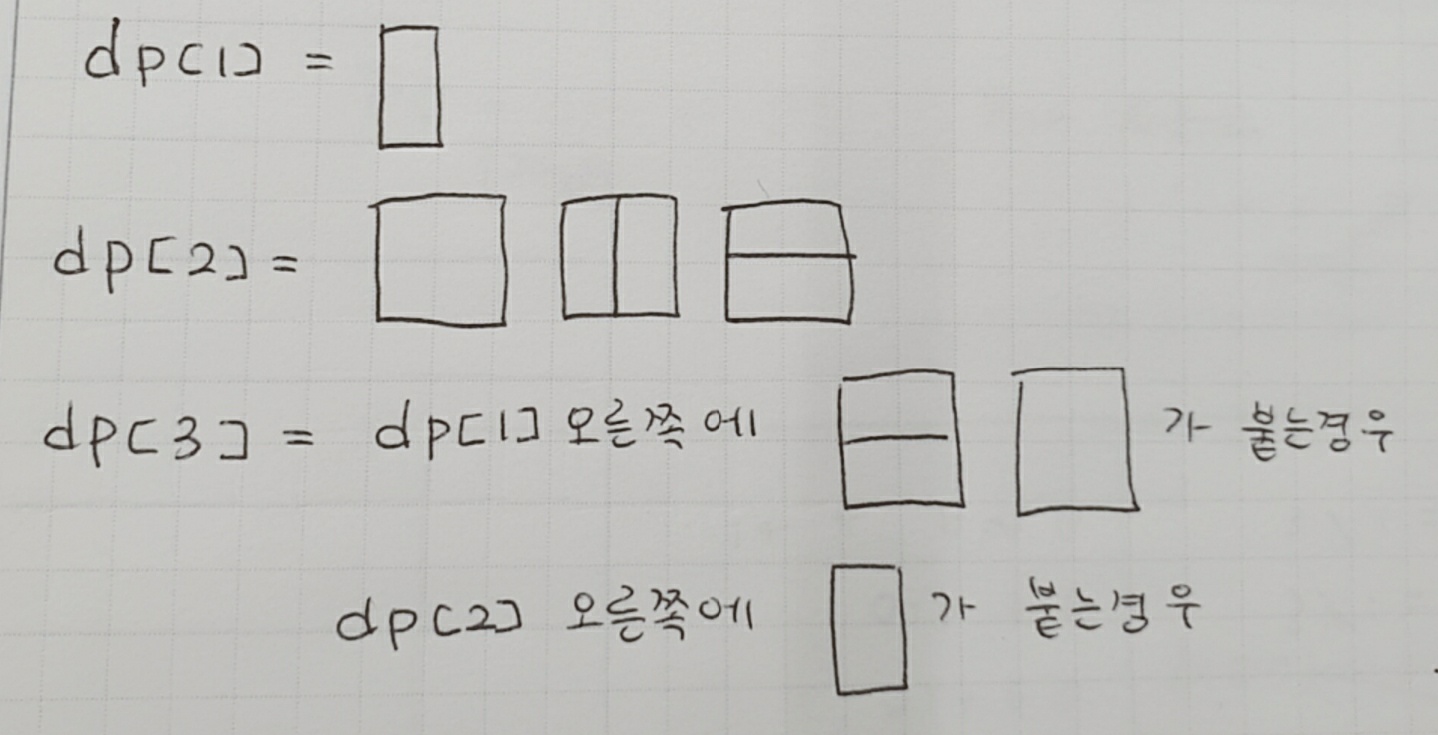 dp[1] =
dp[2] =
dp[3] = dp[1] 오른쪽에 가 붙는경우
dp[2] 오른쪽에 가 붙는경우